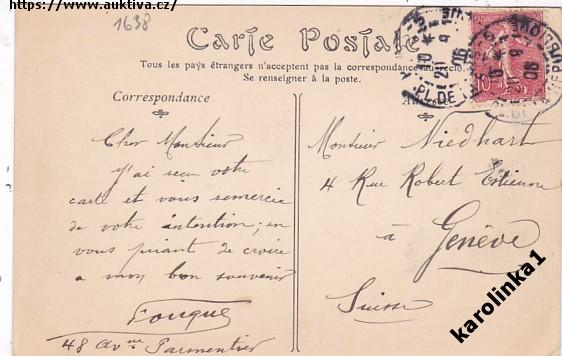 https://www.auktiva.cz/
1638
Carte Postale
Tous les pays étrangers n'acceptent pas la correspondance au recto.
Se renseigner à la poste.
Correspondance
Cher Monsieur
J'ai reçu votre
carte et vous remercie
de votre intention; en
vous priant de croire
a mon bon souvenir
Fouque
48 Avnue Parmentier
Monsieur Niedhart
4 Rue Robert Estienne
à Genève
Suisse
PL. DE LA REPUBLIQUE
20 - 9
06
10
karolinka1